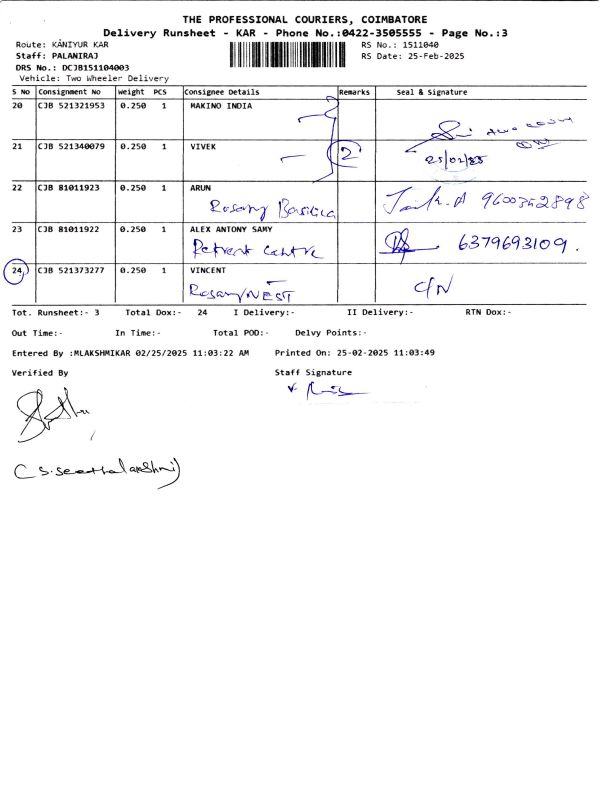 THE PROFESSIONAL COURIERS, COIMBATORE
Delivery Runsheet - KAR - Phone No.:0422-3505555 - Page No.:3
Route: KANIYUR KAR
RS No.: 1511040
Staff: PALANIRAJ
RS Date: 25-Feb-2025
DRS No.: DCJB151104003
Vehicle: Two Wheeler Delivery
S No Consignment No Weight PCS Consignee Details Remarks Seal & Signature
20 CJB 521321953 0.250 1 MAKINO INDIA
21 CJB 521340079 0.250 1 VIVEK 2
25/02/25
22 CJB 81011923 0.250 1 ARUN
Rosary Basilica 9600352898
23 CJB 81011922 0.250 1 ALEX ANTONY SAMY
Retreat Centre 6379693109.
24 CJB 521373277 0.250 1 VINCENT
Rosary NEST C/N
Tot. Runsheet:- 3 Total Dox:- 24 I Delivery:- II Delivery:- RTN Dox:-
Out Time:- In Time:- Total POD:- Delvy Points:-
Entered By :MLAKSHMIKAR 02/25/2025 11:03:22 AM Printed On: 25-02-2025 11:03:49
Verified By Staff Signature
(S.Seethalakshmi)